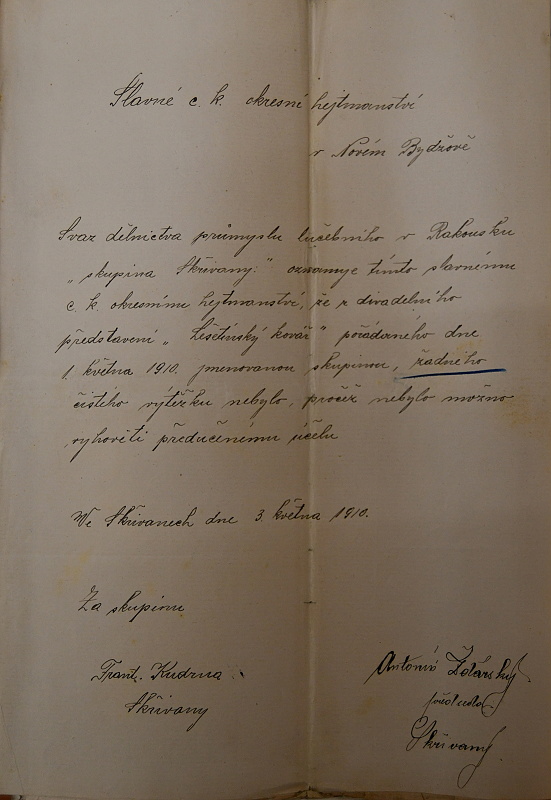 Slavné c. k. okresní hejtmanství
v Novém Bydžově
Svaz dělnictva průmyslu lučebního v Rakousku
„skupina Skřivany:" oznamuje tímto slavnému
c. k. okresnímu hejtmanství, že z divadelního
představení „Lešetínský kovář" pořádaného dne
1. května 1910. jmenovanou skupinou, řádného
čistého výtěžku nebylo, pročež nebylo možno
vyhověti předučenému účelu
We Skřivanech dne 3. května 1910.
Za skupinu
Frant. Kudrna
Skřivany
Antonín Žďárský
předseda
Skřivany